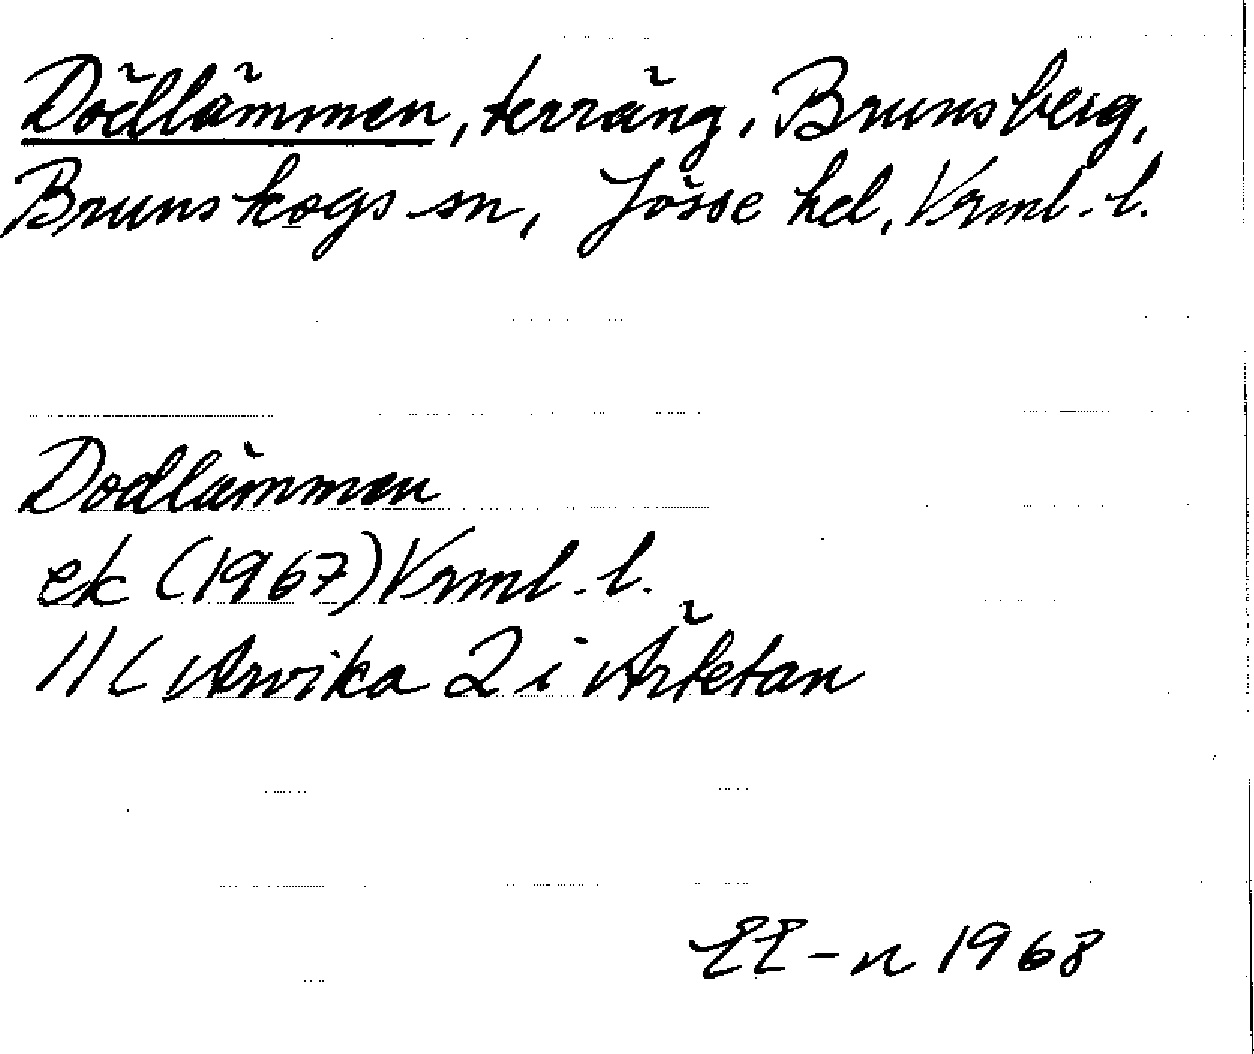 Dödlämmen, terräng, Brunsberg,
Brunskogs sn, Jösse hd, Vrml. l.
Dodlämmen
ek (1967) Vrml. l.
11C Arvika 2 i Ärtetan
EE-n 1968